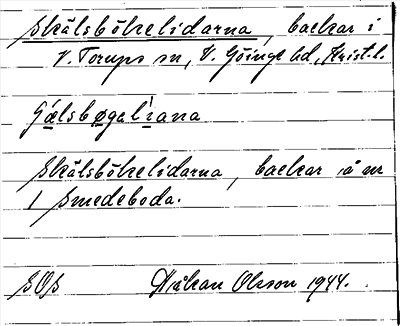 Skälsbökelidarna, backar i
V. Torups sn, V. Göinge hd, Krist. l.
Gǽlsbøgalìana
Skälsbökelidarna, backar å nr
1 Smedeboda.
SOS Håkan Olsson 1944.